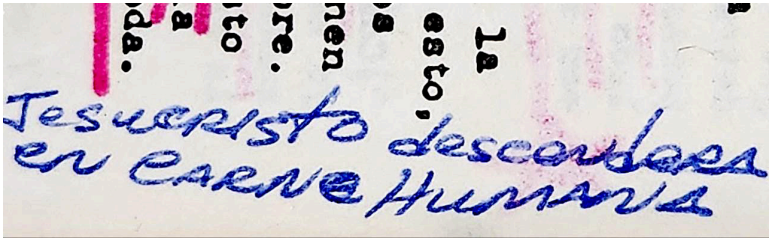 la
esto,
os
men
bre.
uto
la
da.
Jesucristo descendera
en CARNE HUMANA